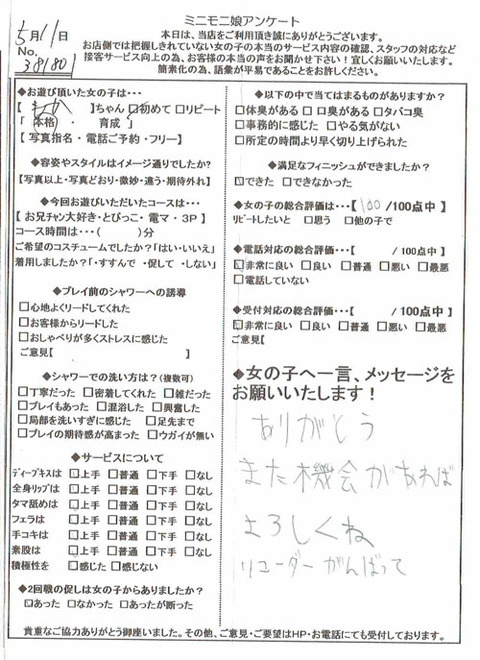 ミニモニ娘アンケート
5月11日
No. 38180
本日は、当店をご利用頂き誠にありがとうございます。
お店側では把握しきれていない女の子の本当のサービス内容の確認、スタッフの対応など
接客サービス向上の為、お客様の本当の声をお聞かせ下さい!宜しくお願いいたします。
簡素化の為、語彙が平易であることをお許しください。
◆お遊び頂いた女の子は・・・
【 】ちゃん □初めて □リピート
「 本格 ・ 育成 」
【 写真指名 ・ 電話ご予約 ・ フリー】
◆容姿やスタイルはイメージ通りでしたか?
【写真以上・写真どおり・微妙・違う・期待外れ】
◆今回お遊びいただいたコースは・・・
【 お兄チャン大好き・とびっこ・電マ・3P 】
コース時間は・・・( )分
ご希望のコスチュームでしたか?「はい・いいえ」
着用しましたか?「・すすんで ・促して ・しない」
◆プレイ前のシャワーへの誘導
□心地よくリードしてくれた
□お客様からリードした
□おしゃべりが多くストレスに感じた
ご意見【 】
◆シャワーでの洗い方は?(複数可)
□丁寧だった □密着してくれた □雑だった
□プレイもあった □混浴した □興奮した
□局部を洗いすぎに感じた □足先まで
□プレイの期待感が高まった □ウガイが無い
◆サービスについて
ディープキスは □上手 □普通 □下手 □なし
全身リップは □上手 □普通 □下手 □なし
タマ舐めは □上手 □普通 □下手 □なし
フェラは □上手 □普通 □下手 □なし
手コキは □上手 □普通 □下手 □なし
素股は □上手 □普通 □下手 □なし
積極性を □感じた □感じない
◆2回戦の促しは女の子からありましたか?
□あった □なかった □あったが断った
◆以下の中で当てはまるものがありますか?
□体臭がある □口臭がある □タバコ臭
□事務的に感じた □やる気がない
□所定の時間より早く切り上げられた
◆満足なフィニッシュができましたか?
□できた □できなかった
◆女の子の総合評価・・・【 100 /100点中】
リピートしたいと □思う □他の子で
◆電話対応の総合評価・・・【 /100点中】
□非常に良い □良い □普通 □悪い □最悪
□電話していない
◆受付対応の総合評価・・・【 /100点中】
□非常に良い □良い □普通 □悪い □最悪
ご意見【
◆女の子へ一言、メッセージを
お願いいたします!
ありがとう
また機会があれば
よろしくね
リコーダーがんばって
貴重なご協力ありがとう御座いました。その他、ご意見・ご要望はHP・お電話にても受付しております。